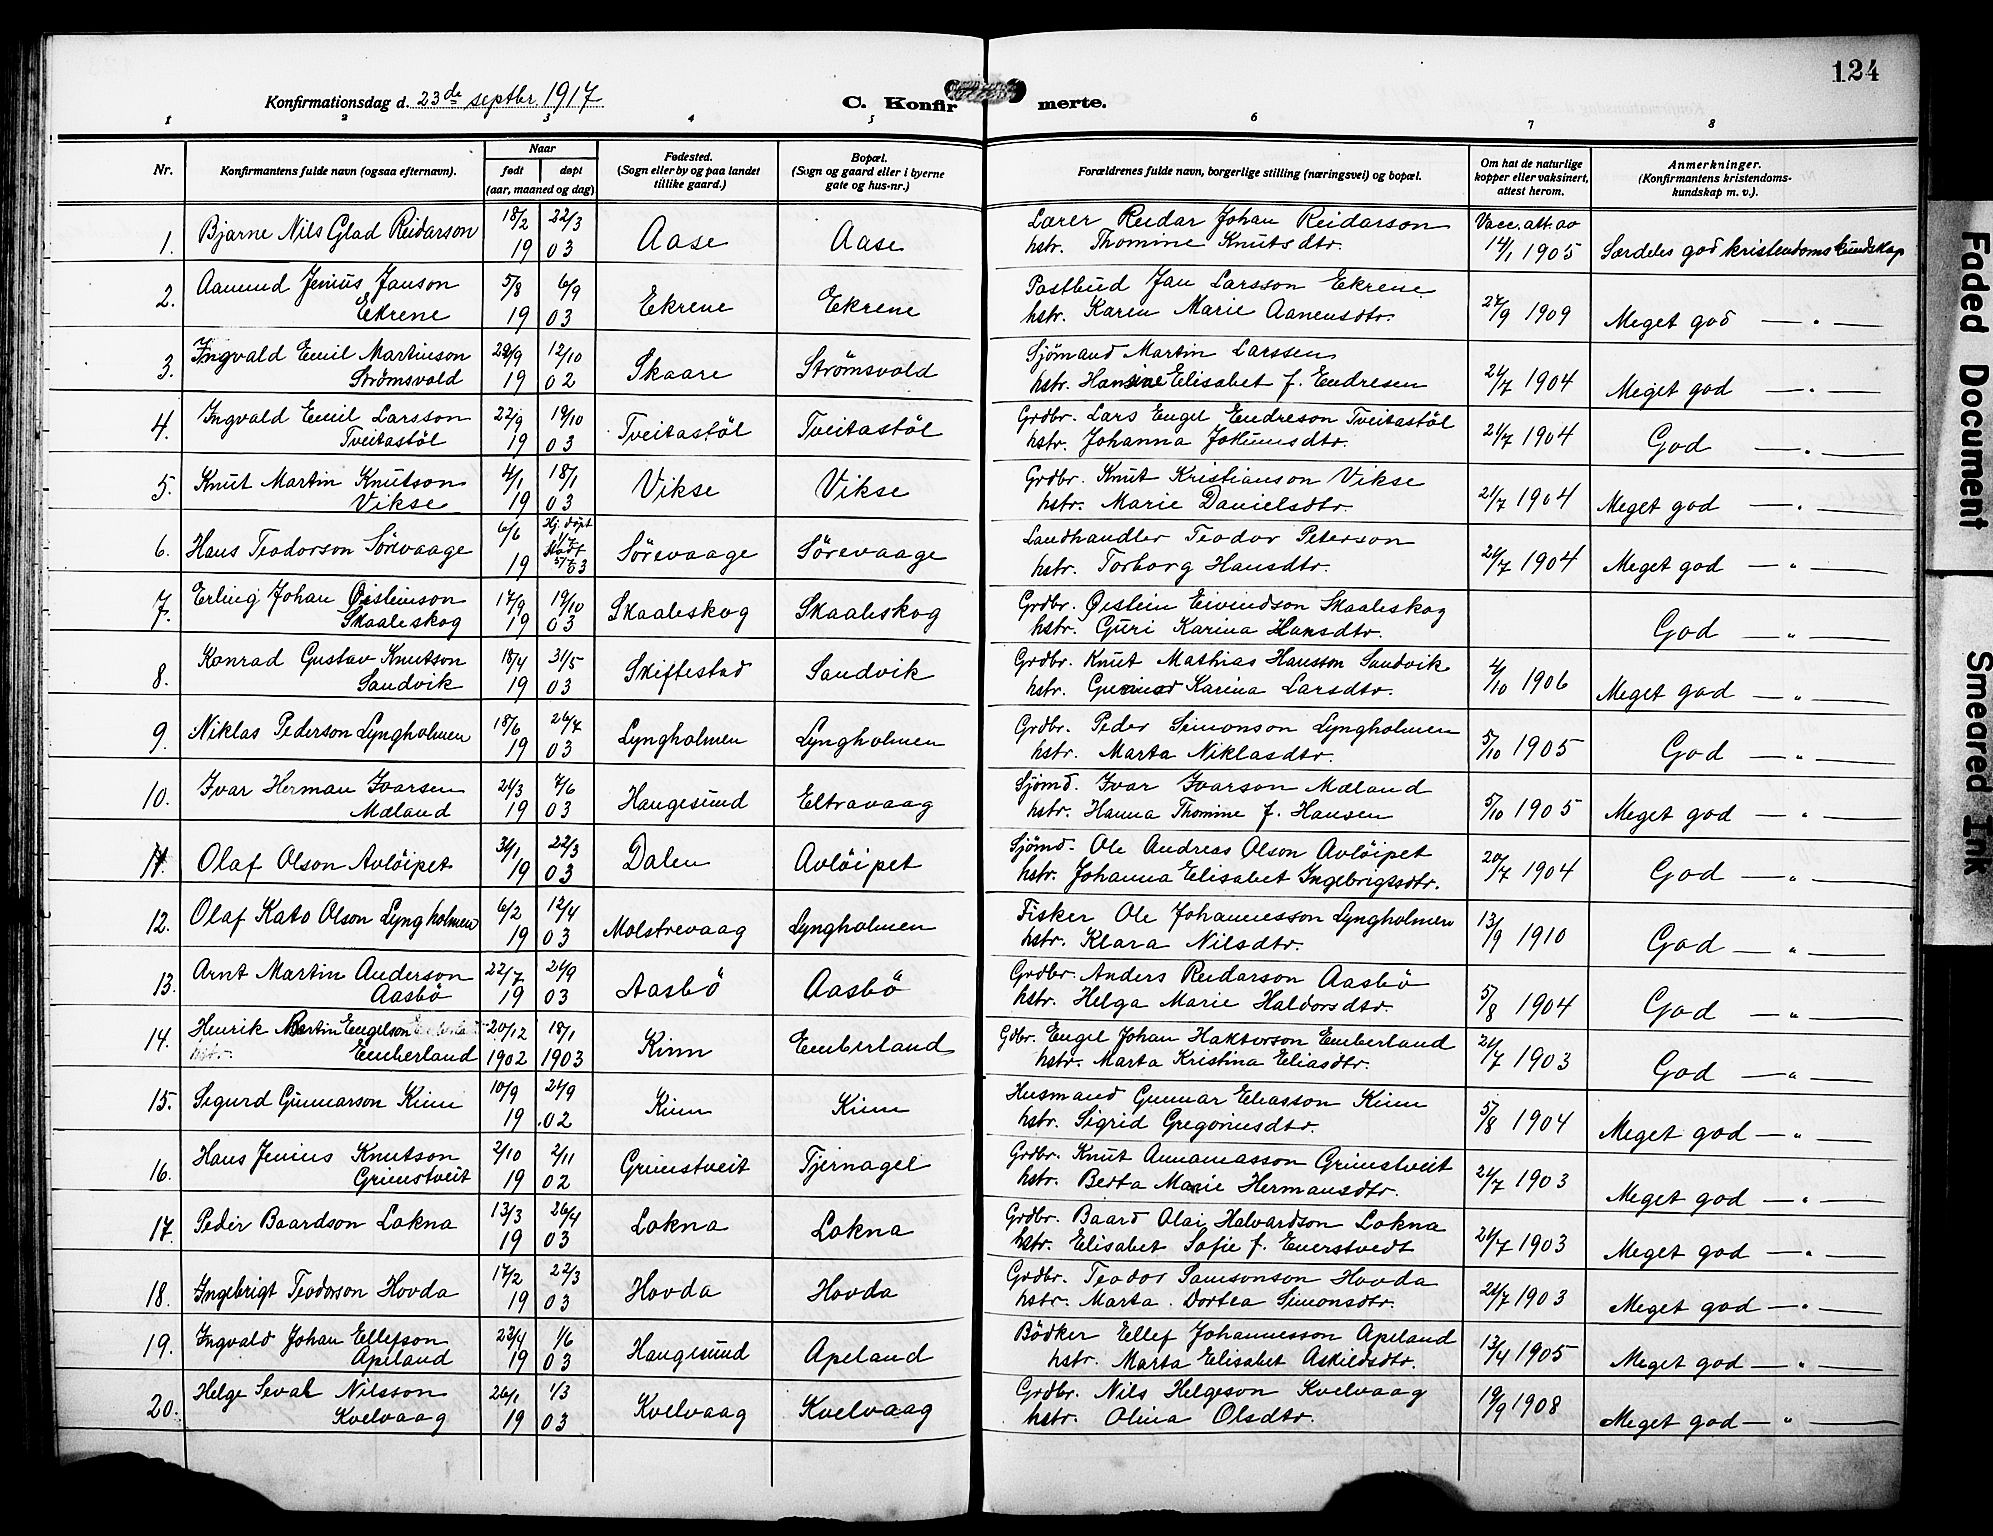 124
Konfirmationsdag d. 23de septbr. 1917
C. Konfirmerte.
1 2 3 4 5 6 7 8
Nr. Konfirmantens fulde navn (ogsaa efternavn). Naar født døpt (aar, maaned og dag) Fødested. (Sogn eller by og paa landet tillike gaard.) Bopæl. (Sogn og gaard eller i byerne gate og hus-nr.) Forældrenes fulde navn, borgerlige stilling (næringsvei) og bopæl. Om hat de naturlige kopper eller vaksinert, attest herom. Anmerkninger. (Konfirmantens kristendomskundskap m. v.).
1. Bjarne Nils Glad Reidarson 18/2 22/3 19 03 Aase Aase Lærer Reidar Johan Reidarson hstr. Thomine Knutsdtr. Vacc. att. av 14/1 1905 Særdeles god kristendomskundskap
2. Aamund Jenius Janson Ekrene 5/8 6/9 19 03 Ekrene Ekrene Postbud Jan Larsson Ekrene hstr. Karen Marie Aanensdtr. 27/9 1909 Meget god — " —
3. Ingvald Emil Martinson Strømsvold 29/9 12/10 19 02 Skaare Strømsvold Sjömand Martin Larssen hstr. Hansine Elisabet f. Endresen 21/7 1904 Meget god — "
4. Ingvald Emil Larsson Tveitastöl 22/9 19/10 19 03 Tveitastöl Tveitastöl Grdbr. Lars Engel Endreson Tveitastöl hstr. Johanna Jokumsdtr. 21/7 1904 God — " —
5. Knut Martin Knutson Vikse 4/1 18/1 19 03 Vikse Vikse Grdbr. Knut Kristianson Vikse hstr. Marie Danielsdtr. 21/7 1904 Meget god — " —
6. Hans Teodorson Sörevaage 6/6 Hj. døpt 19 03 Sörevaage Sörevaage Landhandler Teodor Peterson hstr. Torborg Hansdtr. 21/7 1904 Meget god — " —
7. Erling Johan Øisteinson Skaaleskog 17/9 19/10 19 03 Skaaleskog Skaaleskog Grdbr. Øistein Eivindson Skaaleskog hstr. Guri Karina Hansdtr. God — " —
8. Konrad Gustav Knutson Sandvik 18/4 31/5 19 03 Skiftestad Sandvik Grdbr. Knut Mathias Hansson Sandvik hstr. Karina Larsdtr. 4/10 1906 Meget god — " —
9. Niklas Pederson Lyngholmen 18/6 26/7 19 03 Lyngholmen Lyngholmen Grdbr. Peder Simonson Lyngholmen hstr. Marta Niklasdtr. 5/10 1905 God — " —
10. Ivar Herman Ivarsen Mæland 21/3 7/6 19 03 Haugesund Eltravaag Sjömd. Ivar Ivarson Mæland hstr. Hanna Thomine f. Hansen 5/10 1905 Meget god — " —
11. Olaf Olson Avlöipet 31/1 22/3 19 03 Dalen Avlöipet Sjömd. Ole Andreas Olson Avlöipet hstr. Johanna Elisabet Ingebrigtsdtr. 20/7 1904 God — " —
12. Olaf Kato Olson Lyngholmen 6/2 12/4 19 03 Molstrevaag Lyngholmen Fisker Ole Johannesson Lyngholmen hstr. Klara Nilsdtr. 13/9 1910 God — " —
13. Arnt Martin Anderson Aasbö 22/7 21/9 19 03 Aasbö Aasbö Grdbr. Anders Reidarson Aasbö hstr. Helga Marie Haldorsdtr. 5/8 1904 God — " —
14. Henrik Martin Engelson Emberland 20/12 18/1 1902 1903 Kinn Emberland Gdbr. Engel Johan Haktorson Emberland hstr. Marta Kristina Eliasdtr. 21/7 1903 God — " —
15. Sigurd Gunnarson Kinn 10/9 21/9 19 02 Kinn Kinn Husmand Gunnar Eliasson Kinn hstr. Sigrid Gregoriusdtr. 5/8 1904 Meget god — " —
16. Hans Jenius Knutson Grimstveit 2/10 2/11 19 02 Grimstveit Tjernagel Grdbr. Knut Annamasson Grimstveit hstr. Berta Marie Hermansdtr. 21/7 1903 Meget god — " —
17. Peder Baardson Lokna 13/3 26/4 19 03 Lokna Lokna Grdbr. Baard Olai Halvardson Lokna hstr. Elisabet Sofie f. Enerstvedt 21/7 1903 Meget god — " —
18. Ingebrigt Teodorson Hovda 17/2 22/3 19 03 Hovda Hovda Grdbr. Teodor Samsonson Hovda hstr. Marta Dortea Simonsdtr. 21/7 1903 Meget god — " —
19. Ingvald Johan Ellefson Apeland 23/4 1/6 19 03 Haugesund Apeland Bödker Ellef Johannesson Apeland hstr. Marta Elisabet Askildsdtr. 13/4 1905 Meget god — " —
20. Helge Seval Nilsson Kvelvaag 26/1 1/3 19 03 Kvelvaag Kvelvaag Grdbr. Nils Helgeson Kvelvaag hstr. Olina Olsdtr. 19/9 1908 Meget god — " —
Faded Document
Smeared Ink